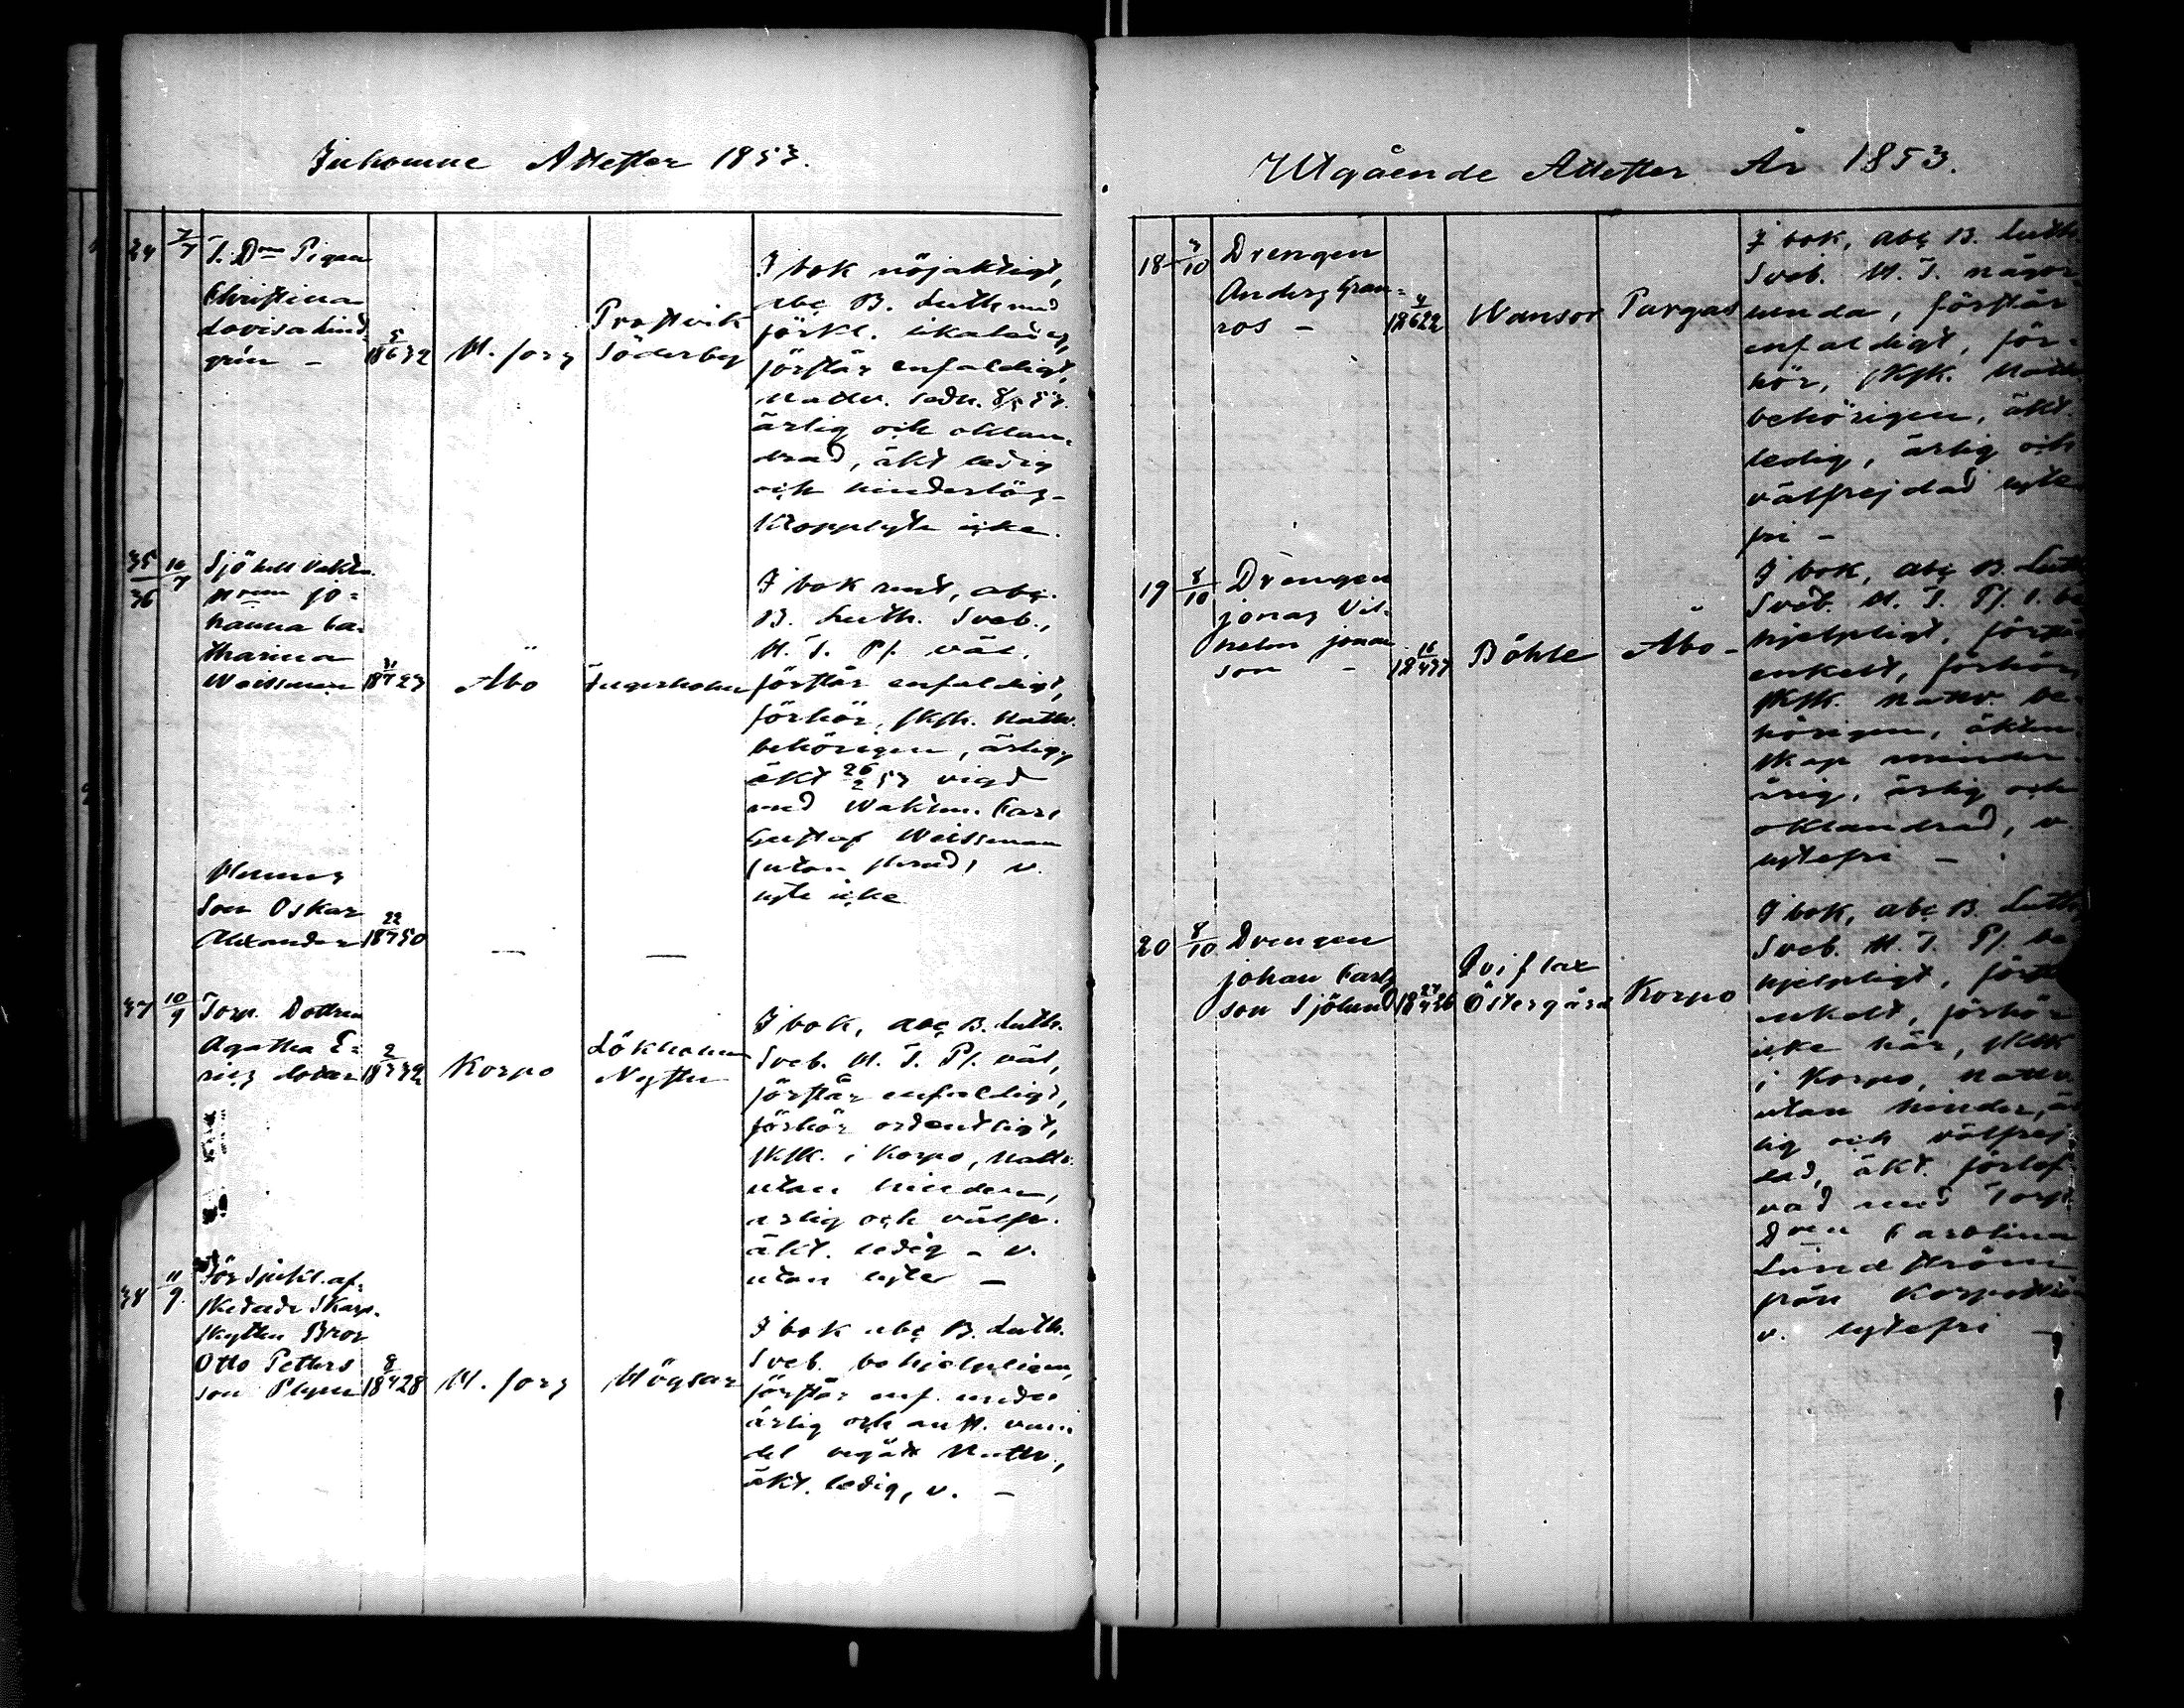 Inkomne Attester 1853.
34 7/7 T. Dren Pigan
Christina
Lovisa Lind-
grén – 5/6 1832 M. Jorz Prostvik
Söderby
I bok nöjaktigt,
abc B. Luth med
förkl.
förstår enfaldigt,
Nattv. sedn. 8/5 53.
ärlig och oklan-
drad, äkt ledig
och hinderlös –
Kroppslyte icke.
35 16/7 Sjötull vakt.
36 Jo-
hanna Ca-
tharina
Weissman 1823 Åbo
I bok rent, abc.
B. Luth. Sveb.,
H. T. Ps. väl,
förstår enfaldigt,
förhör, sksk. Nattv.
behörigen, ärlig,
äkt 26/2 53 vigd
med Waktm. Carl
Gustaf Weissman
(utan ) v.
lyte icke
Hennes
Son Oskar
Alexander 22/7 1850 — —
37 10/9 Torp. Dottren
Agatha E-
rics dotter 2/7 1832 Korpo Lökholm
Nystu
I bok, abc B. Luth.
Sveb. H. T. Ps. väl,
förstår enfaldigt,
förhör ordentligt,
sksk. i Korpo, Nattv.
utan hinder,
ärlig och välfr.
äkt. ledig – v.
utan lyte —
38 11/9 För Sjukl. af-
skedade Skarp-
skytten Bror
Otto Petters
son Plym 8/4 1828 M. Jorz Högsar
I bok abc B. Luth.
Sveb. behjelpligen,
förstår enf. under
ärlig och anst. van-
del begått Nattv.,
äkt. ledig, v. –
Utgående Attester År 1853.
18 3/10 Drengen
Anders Gran-
ros – 4/6 1822 Wansor Pargas
I bok, abc B. Luth.
Sveb. H. T. någor-
lunda, förstår
enfaldigt, för-
hör, sksk. Nattv.
behörigen, äkt.
ledig, ärlig och
välfrejdad lyte
fri –
19 8/10 Drengen
Jonas Vil-
helm Jonas
son – 16/4 1837 Böhle Åbo –
I bok, abc B. Luth
Sveb. H. T. Ps. 1. be
hjelpligt, förstår
enkelt, förhör,
sksk. nattv. be-
hörigen, äkten-
skap minder-
årig, ärlig och
oklandrad, v.
lytefri –
20 8/10 Drengen
Johan Carls
son Sjölund 27/4 1826 Qviflax
Östergård Korpo
I bok, abc B. Luth,
Sveb. H. T. Ps. be
hjelpligt, förstår
enkelt, förhör
icke här, sksk
i Korpo, Nattv.
utan hinder, är
lig och välfrej
dad, äkt. förlof-
vad med Torp.
Dren Carolina
Lindström
från Korpo
v. lytefri –